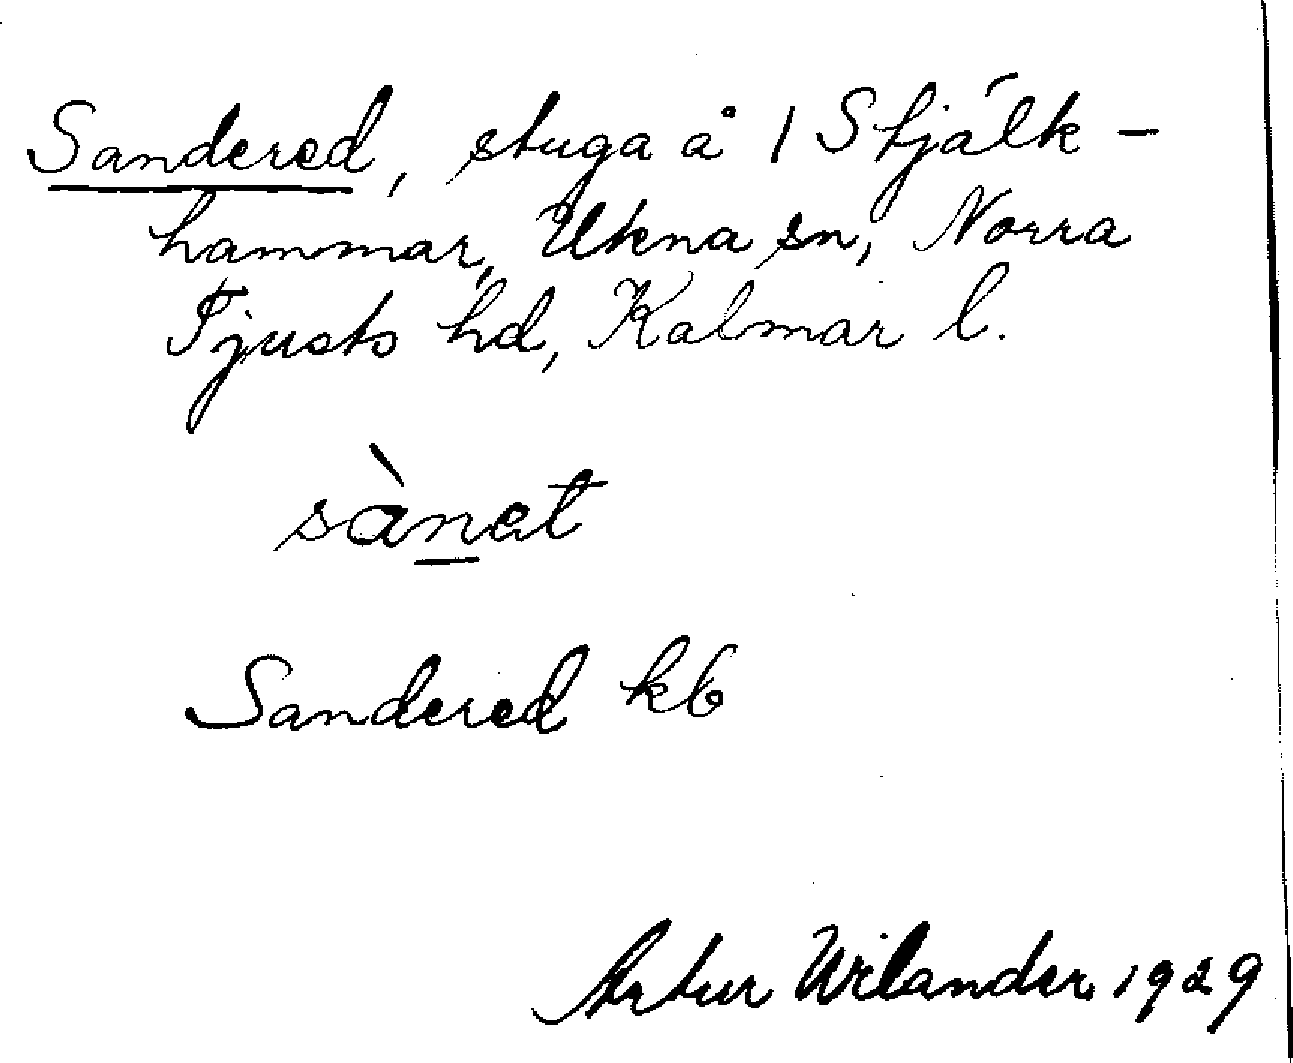 Sandered, stuga å 1 Stjälk-
hammar, Ukna sn, Norra
Tjusts hd, Kalmar l.
sànat
Sandered kb
Artur Wilander 1929